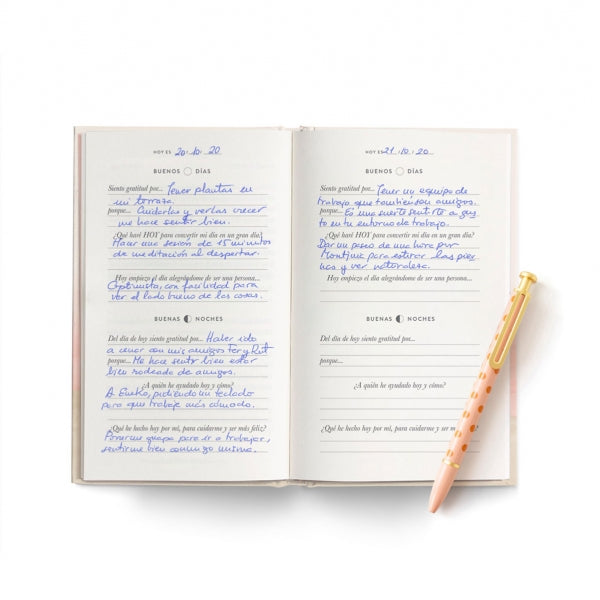 HOY ES 20.10.20
BUENOS DÍAS
Siento gratitud por... Tener plantas en
mi terraza.
porque... Cuidarlas y verlas crecer
me hace sentir bien.
¿Qué haré HOY para convertir mi día en un gran día?
Hacer una sesión de 15 minutos
de meditación al despertar.
Hoy empiezo el día alegrándome de ser una persona...
Optimista, con facilidad para
ver el lado bueno de las cosas.
BUENAS NOCHES
Del día de hoy siento gratitud por... Haber ido
a cenar con mis amigos Fer y Rut
porque... Me hace sentir bien estar
bien rodeada de amigos.
¿A quién he ayudado hoy y cómo?
A Eneko, pidiendo un teclado
para que trabaje más cómodo.
¿Qué he hecho hoy por mí, para cuidarme y ser más feliz?
Ponerme guapa para ir a trabajar,
sentirme bien conmigo misma.
HOY ES 21.10.20
BUENOS DÍAS
Siento gratitud por... Tener un equipo de
trabajo que también son amigos.
porque... Es una suerte sentirte a gus
to en tu entorno de trabajo.
¿Qué haré HOY para convertir mi día en un gran día?
Dar un paseo de una hora por
Montjuic para estirar las pier
nas y ver naturaleza.
Hoy empiezo el día alegrándome de ser una persona...
BUENAS NOCHES
Del día de hoy siento gratitud por...
porque...
¿A quién he ayudado hoy y cómo?
¿Qué he hecho hoy por mí, para cuidarme y ser más feliz?